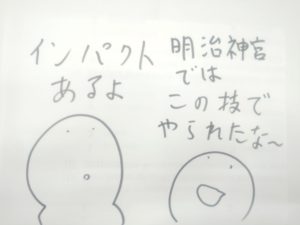 インパクト
あるよ
明治神宮
では
この技で
やられたな〜